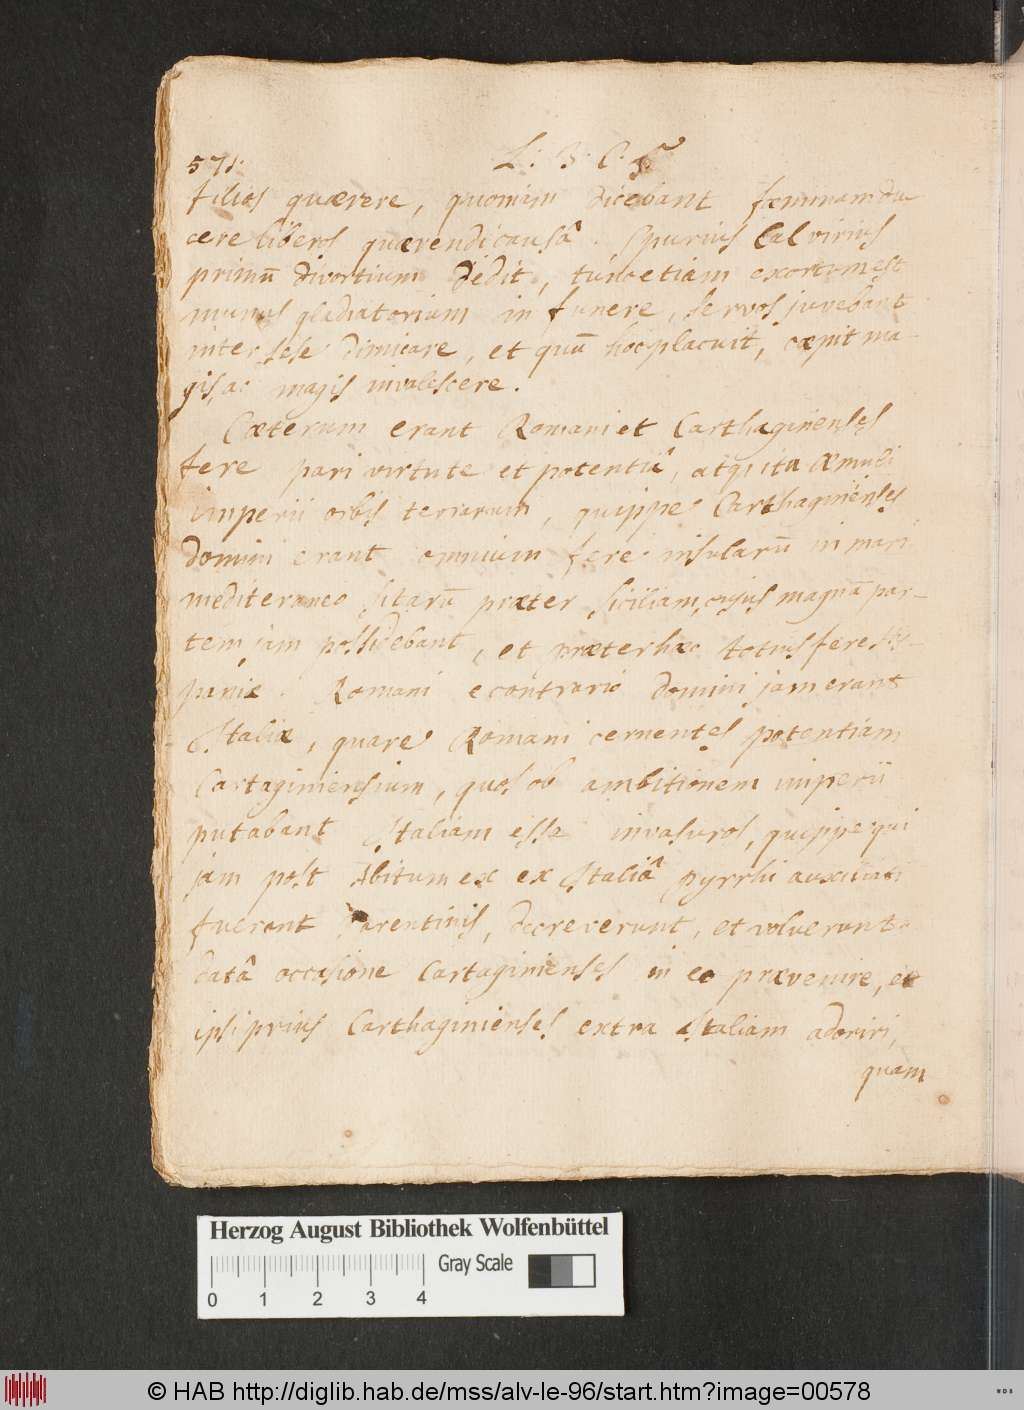 571. L: 3: C: 5
filios quærere, quoniam dicebant fæminam du
cere liberos quærendi causâ. Spurius Calvirius
primū divortium dedit, tunc etiam exortum est
munus gladiatorium in funere, servos juvebant
inter sese dimicare, et quū hoc placuit, cæpit ma-
gis ac magis invalescere.
Cæterum erant Romani et Carthaginenses
fere pari virtute et potentiâ, atq; ita æmuli
imperii orbis terrarum, quippe Carthaginienses
domini erant omnium fere insularū in mari
mediteraneo sitarū præter Siciliam, cujus magnā par-
tem jam possidebant, et præterhæc totius fere His-
paniæ. Romani e contrario domini jam erant
Italiæ, quare Romani cernentes potentiam
Cartaginiensium, quos ob ambitionem imperii
putabant Italiam esse invasuros, quippe qui
jam post abitum ex ex Italiâ pyrrhi auxiliati
fuerant Tarentinis, decreverunt, et voluerunt
datâ occasione Cartaginienses in eo prævenire, et
ipsi prius Carthaginienses extra Italiam adoriri,
quam
Herzog August Bibliothek Wolfenbüttel
Gray Scale
0 1 2 3 4
© HAB http://diglib.hab.de/mss/alv-le-96/start.htm?image=00578